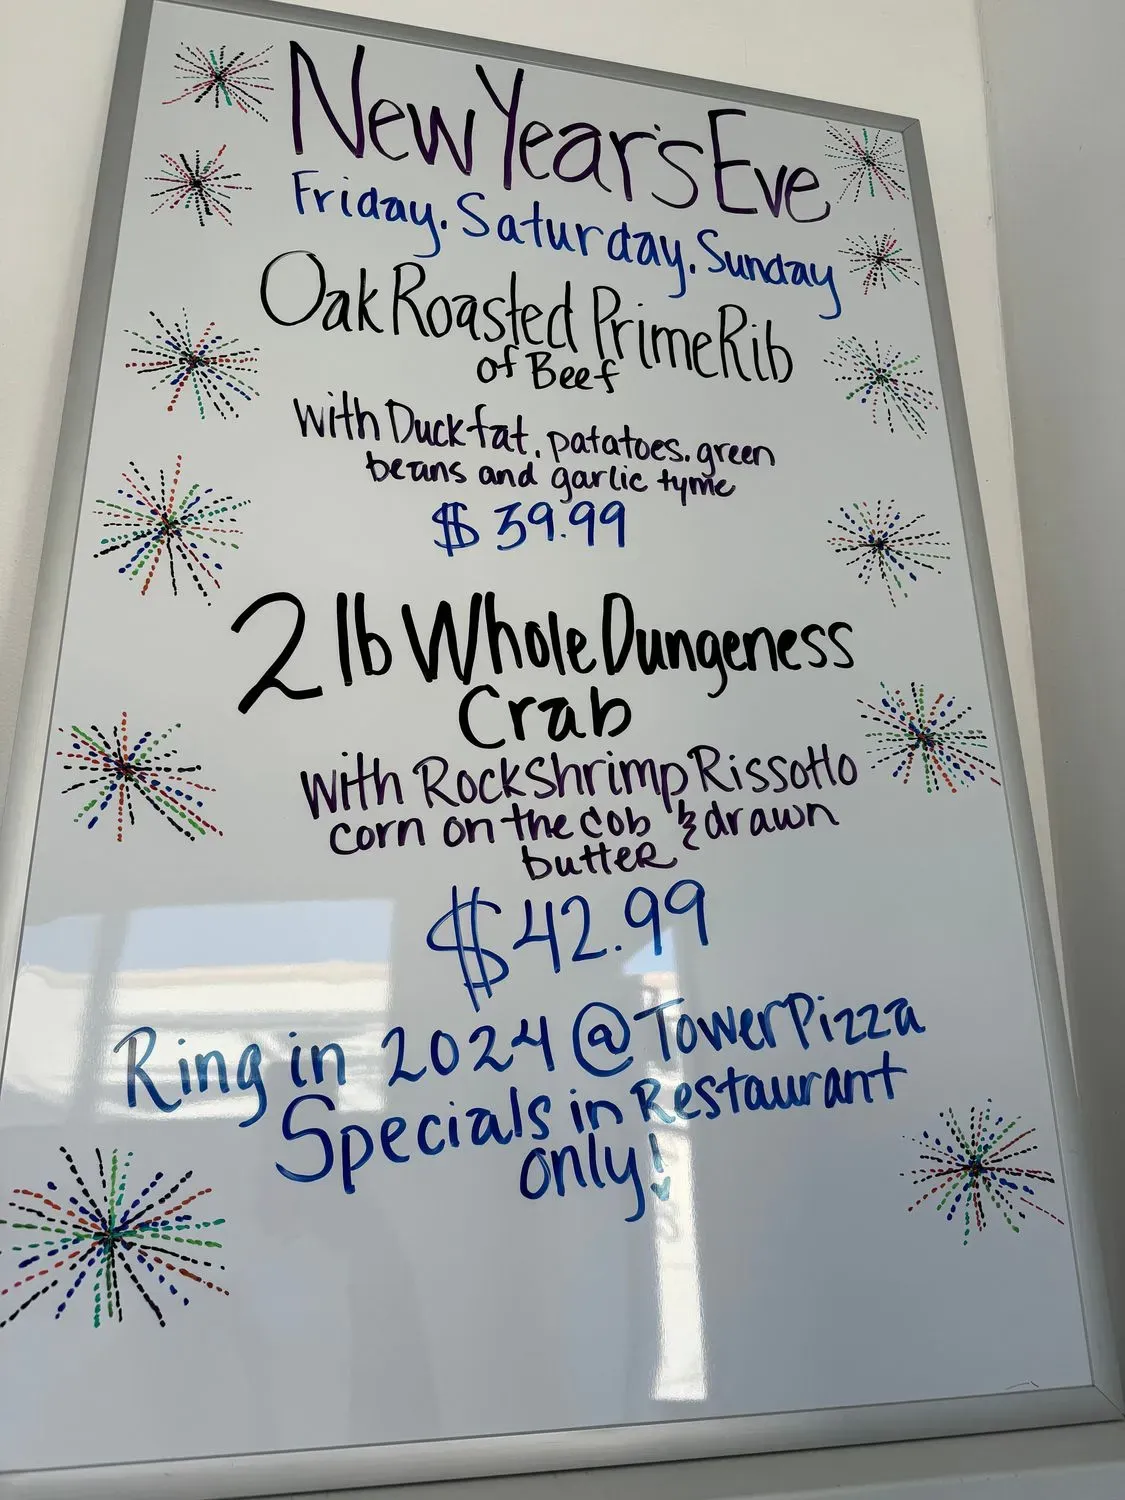 New Year's Eve
Friday. Saturday. Sunday
Oak Roasted Prime Rib
of Beef
with Duck fat. patatoes. green
beans and garlic tyme
$39.99
2 lb Whole Dungeness
Crab
with Rock Shrimp Rissotto
corn on the cob & drawn
butter
$42.99
Ring in 2024 @ Tower Pizza
Specials in Restaurant
only!